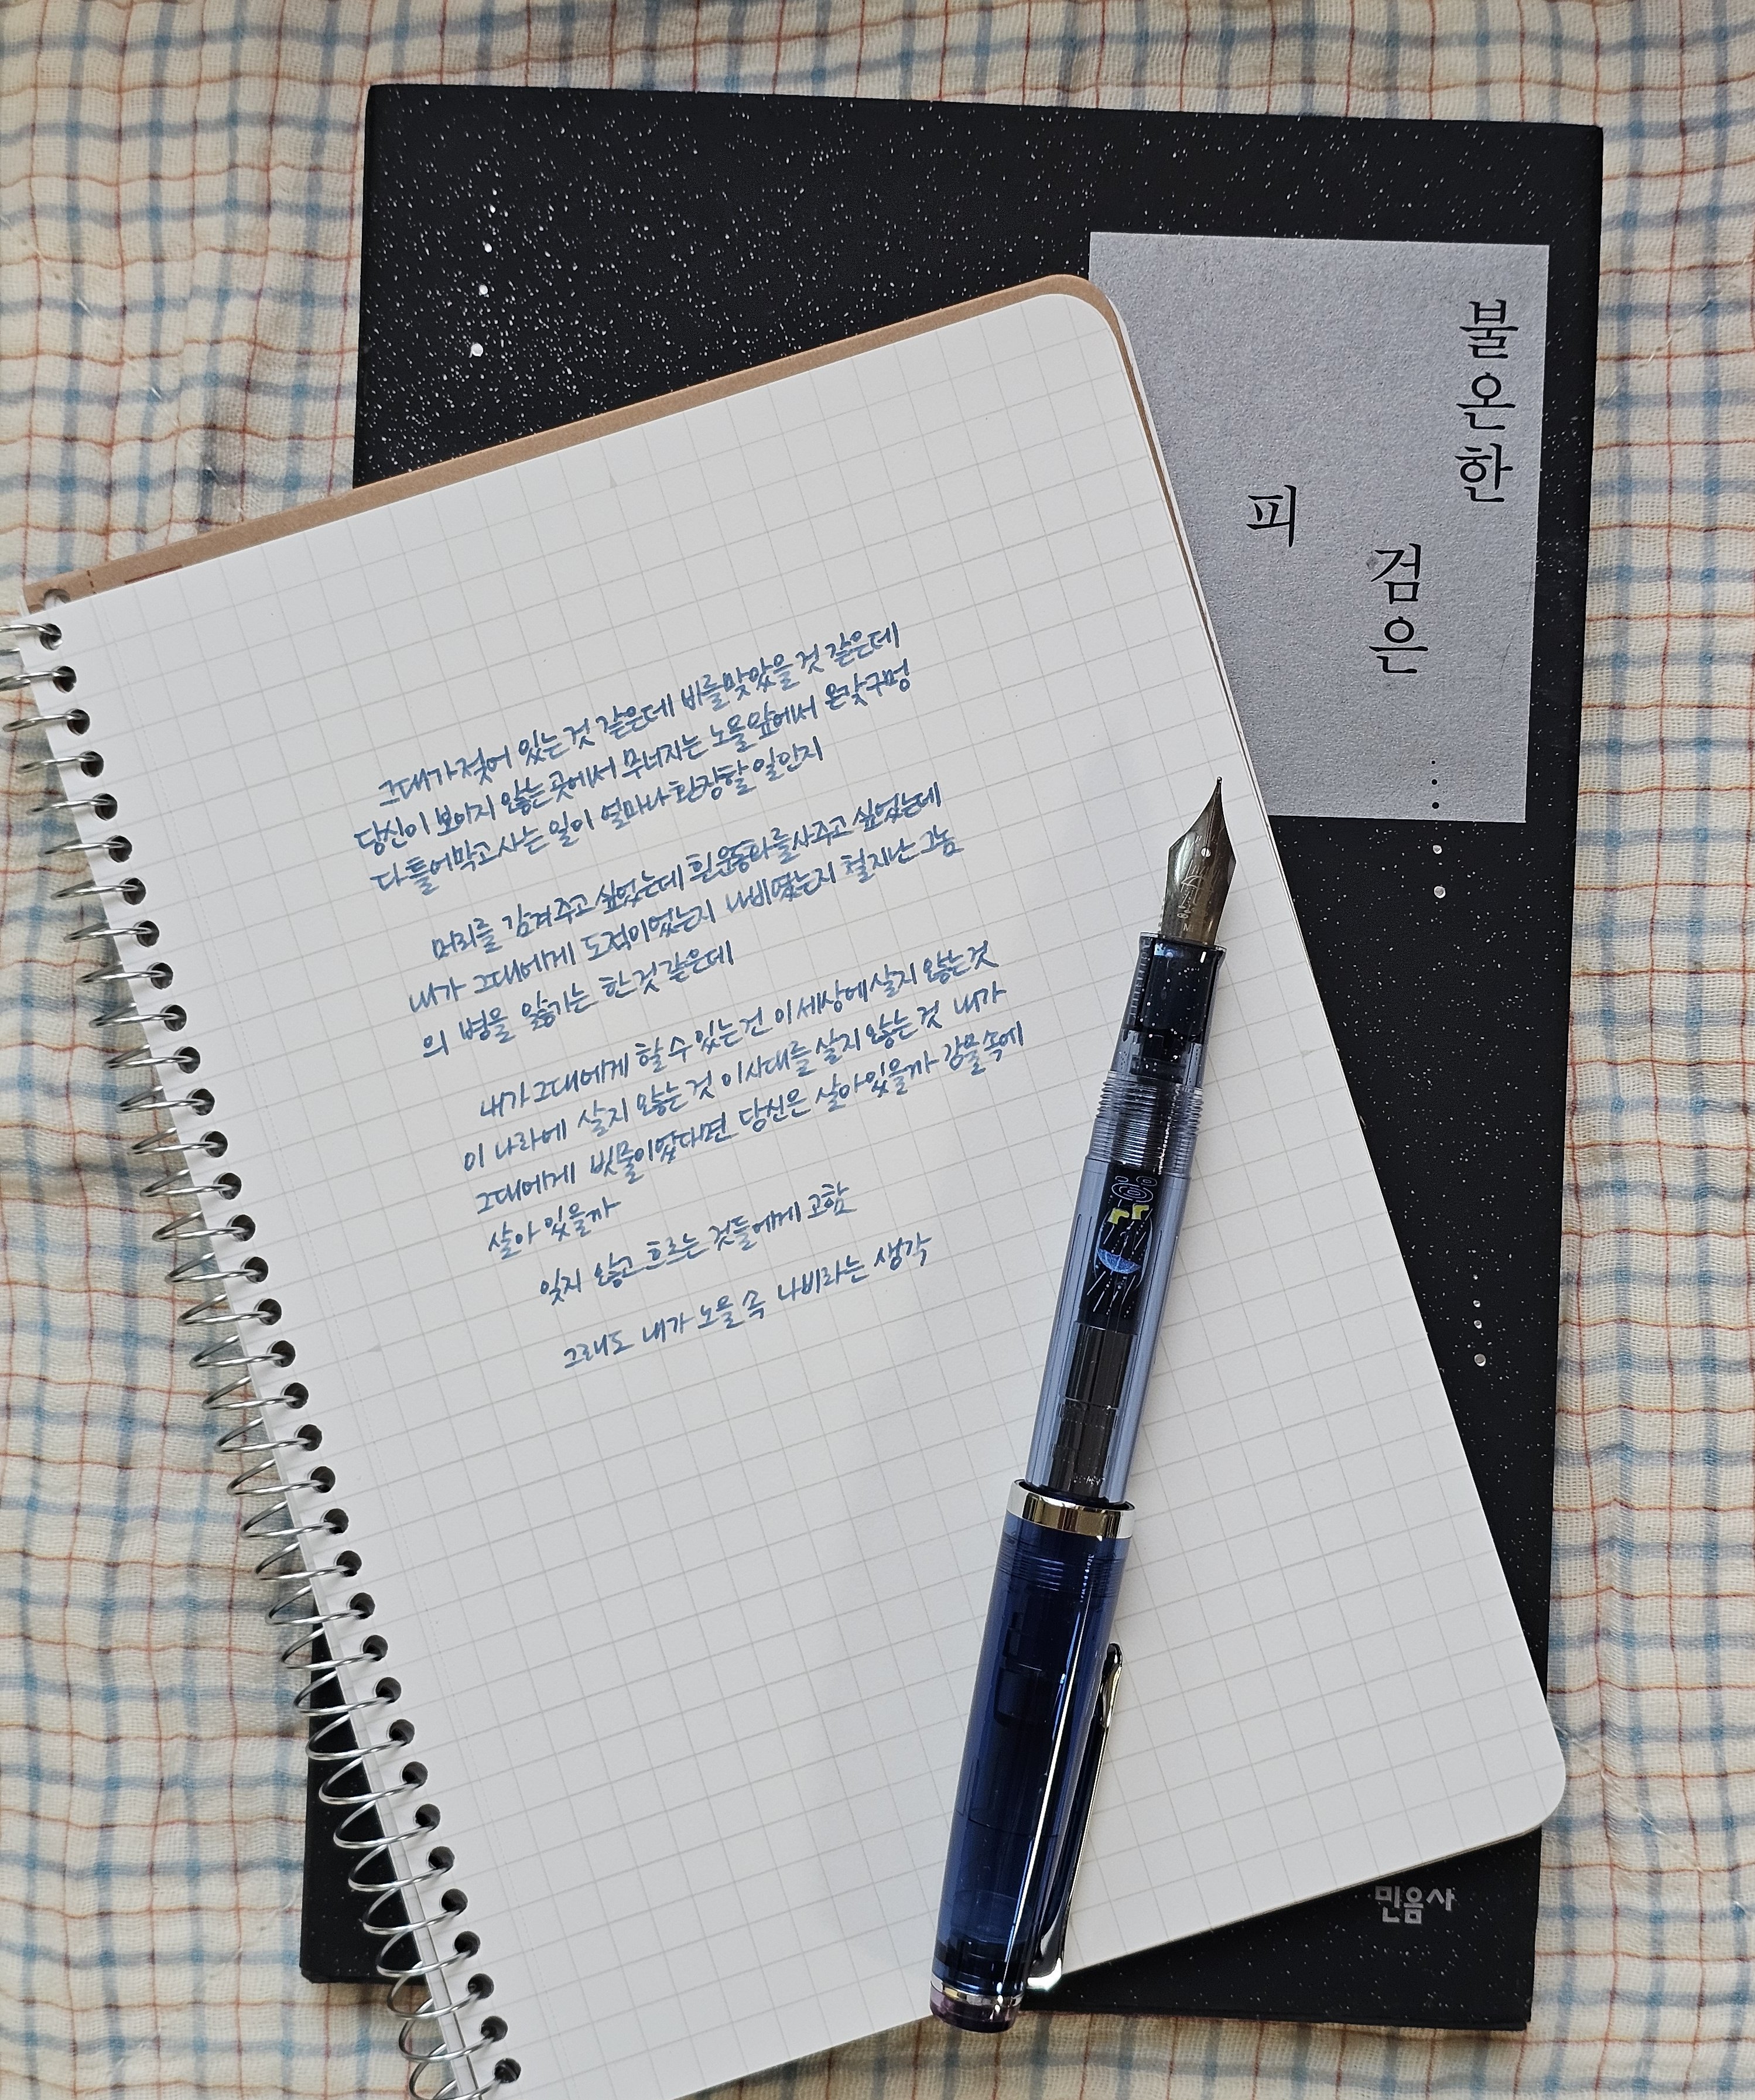 불온한
검은
피
그대가 젖어 있는 것 같은데 비를 맞았을 것 같은데
당신이 보이지 않는 곳에서 무너지는 노을 앞에서 온갖 구멍
다 틀어막고 사는 일이 얼마나 환장할 일인지
머리를 감겨 주고 싶었는데 흰 운동화를 사주고 싶었는데
내가 그대에게 도적이었는지 나비였는지 철 지난 그놈
의 병을 앓기는 한 것 같은데
내가 그대에게 할 수 있는 건 이 세상에 살지 않는 것
이 나라에 살지 않는 것 이 시대를 살지 않는 것 내가
그대에게 빗물이었다면 당신은 살아 있을까 강물 속에
살아 있을까
잊지 않고 흐르는 것들에게 고함
그래도 내가 노을 속 나비라는 생각
민음사